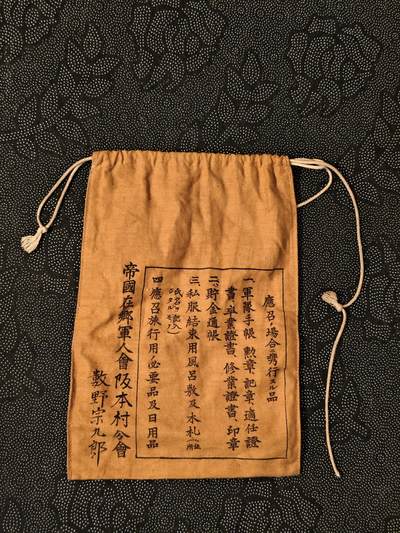 應召ノ場合ニ携行スル品
一、軍隊手帳、勲章、記章、適任證
書、卒業證書、修業證書、印章
二、貯金通帳
三、私服結束用風呂敷及木札(住所
氏名ヲ記入
シタルモノ)
四、應召旅行用必要品及日用品
帝國在郷軍人會阪本村分會
敷野宗九郎